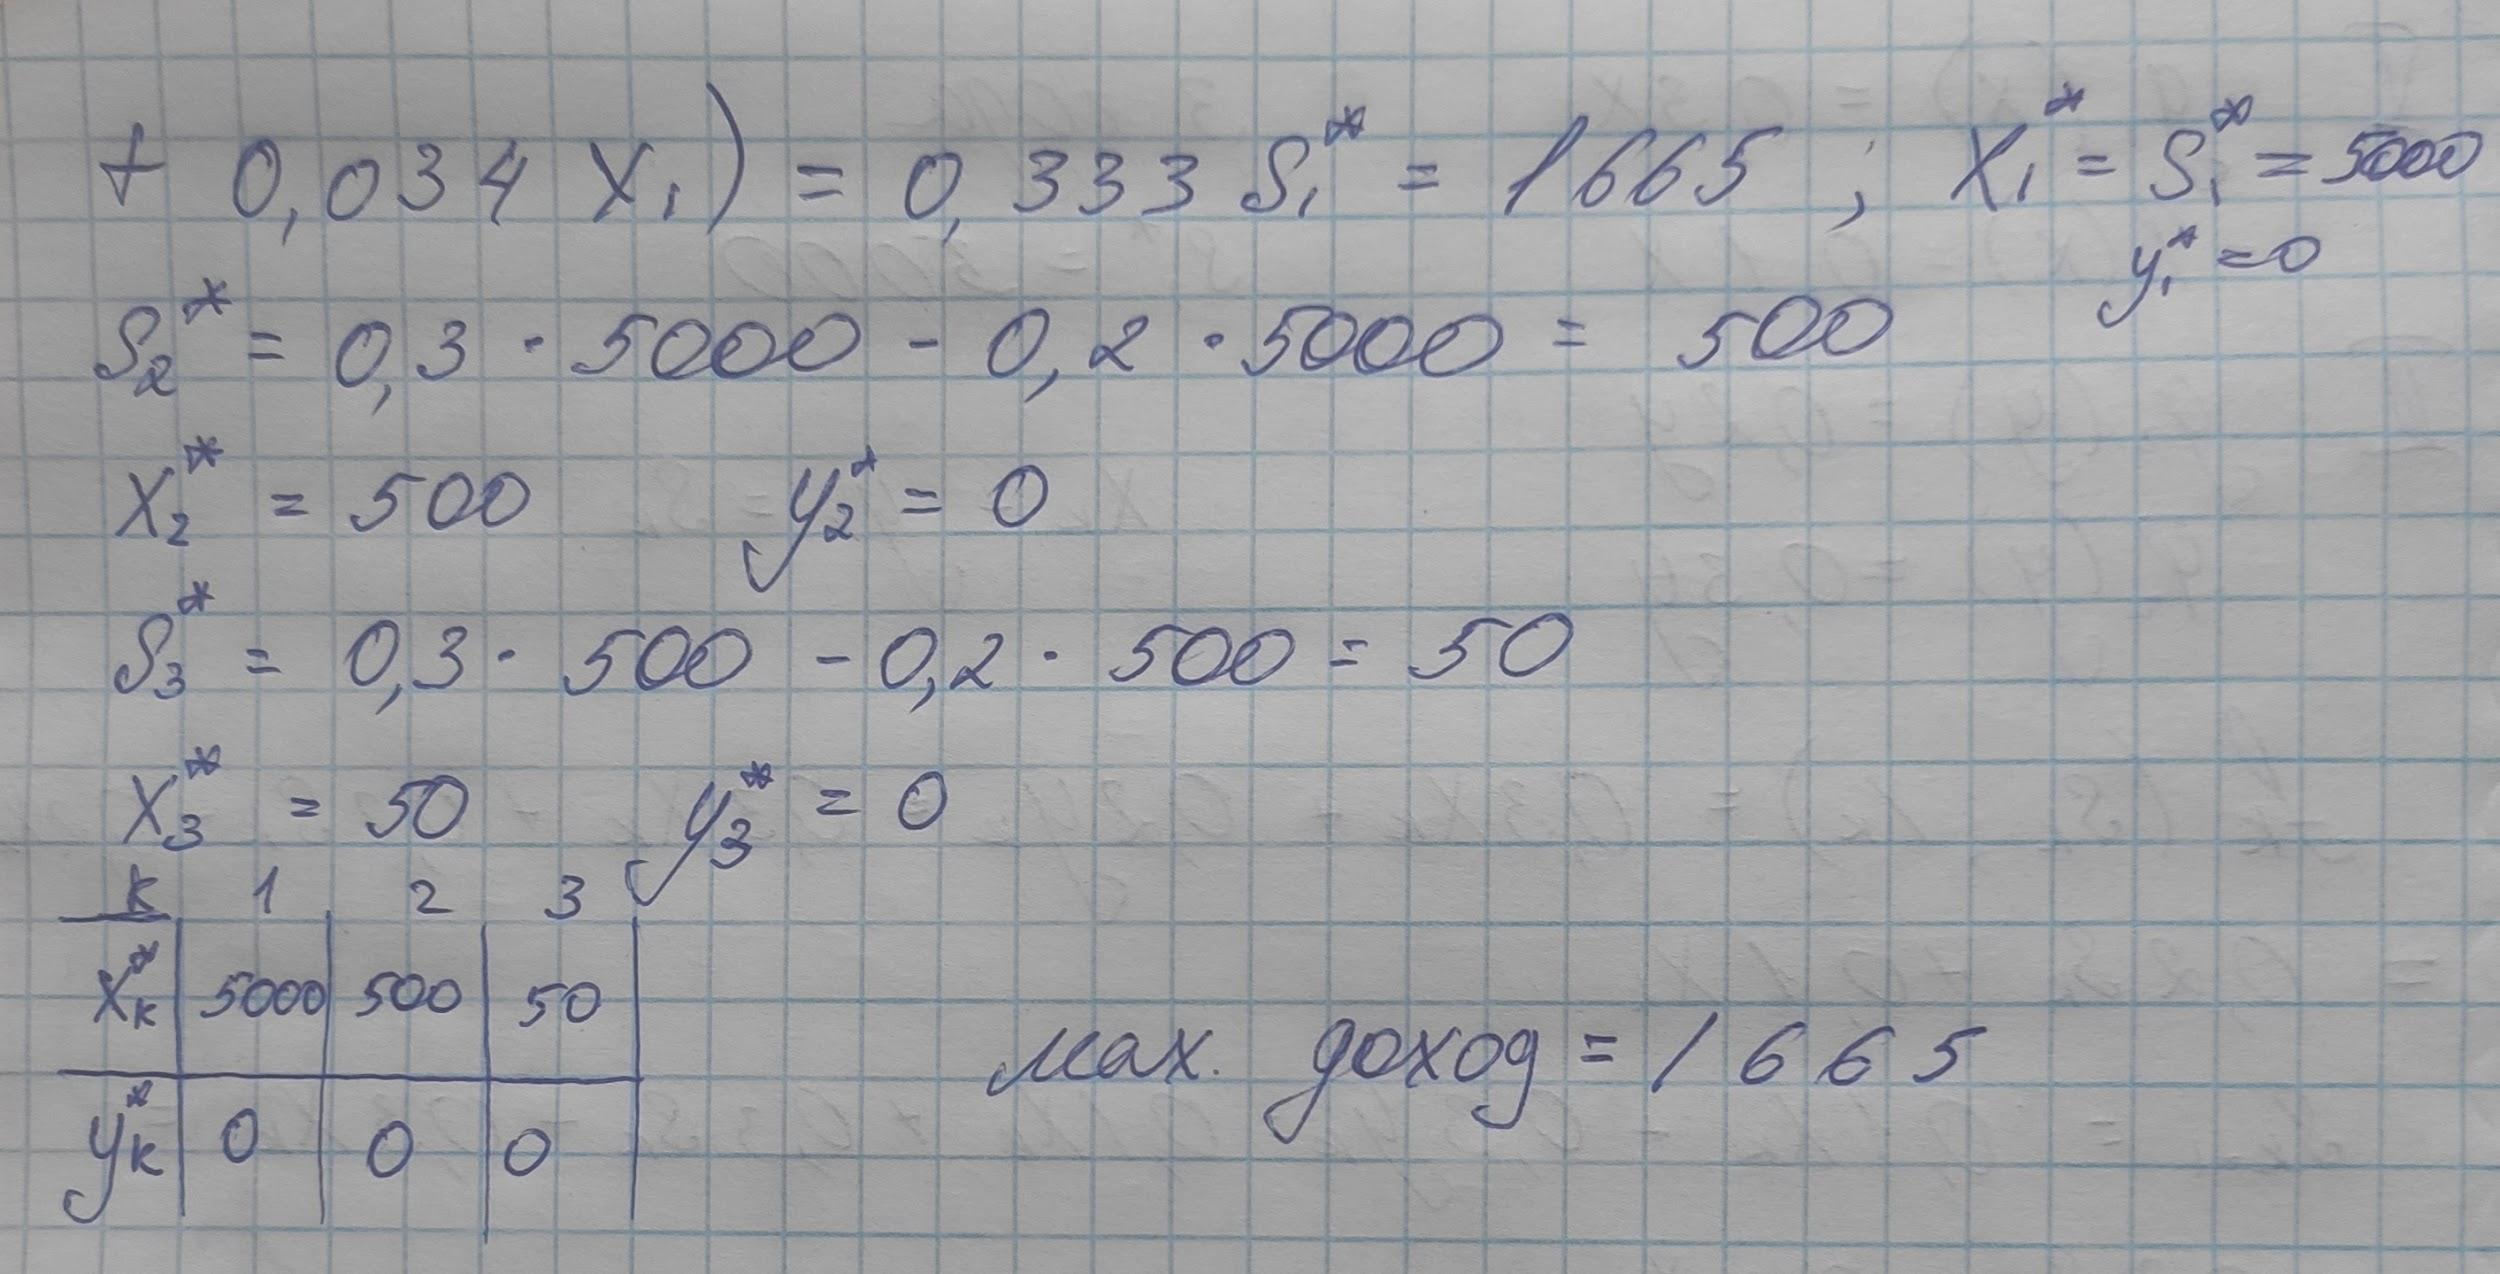 + 0,034 X₁) = 0,333 S₁* = 1665 ; X₁* = S₁* = 5000
y₁* = 0
S₂* = 0,3 · 5000 - 0,2 · 5000 = 500
X₂* = 500 y₂* = 0
S₃* = 0,3 · 500 - 0,2 · 500 = 50
X₃* = 50 y₃* = 0
к 1 2 3
Xк* 5000 500 50
yк* 0 0 0
мах. доход = 1665